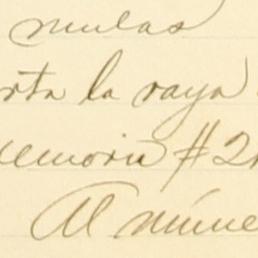 mulas
rta la raya
memoria #2
Al núme